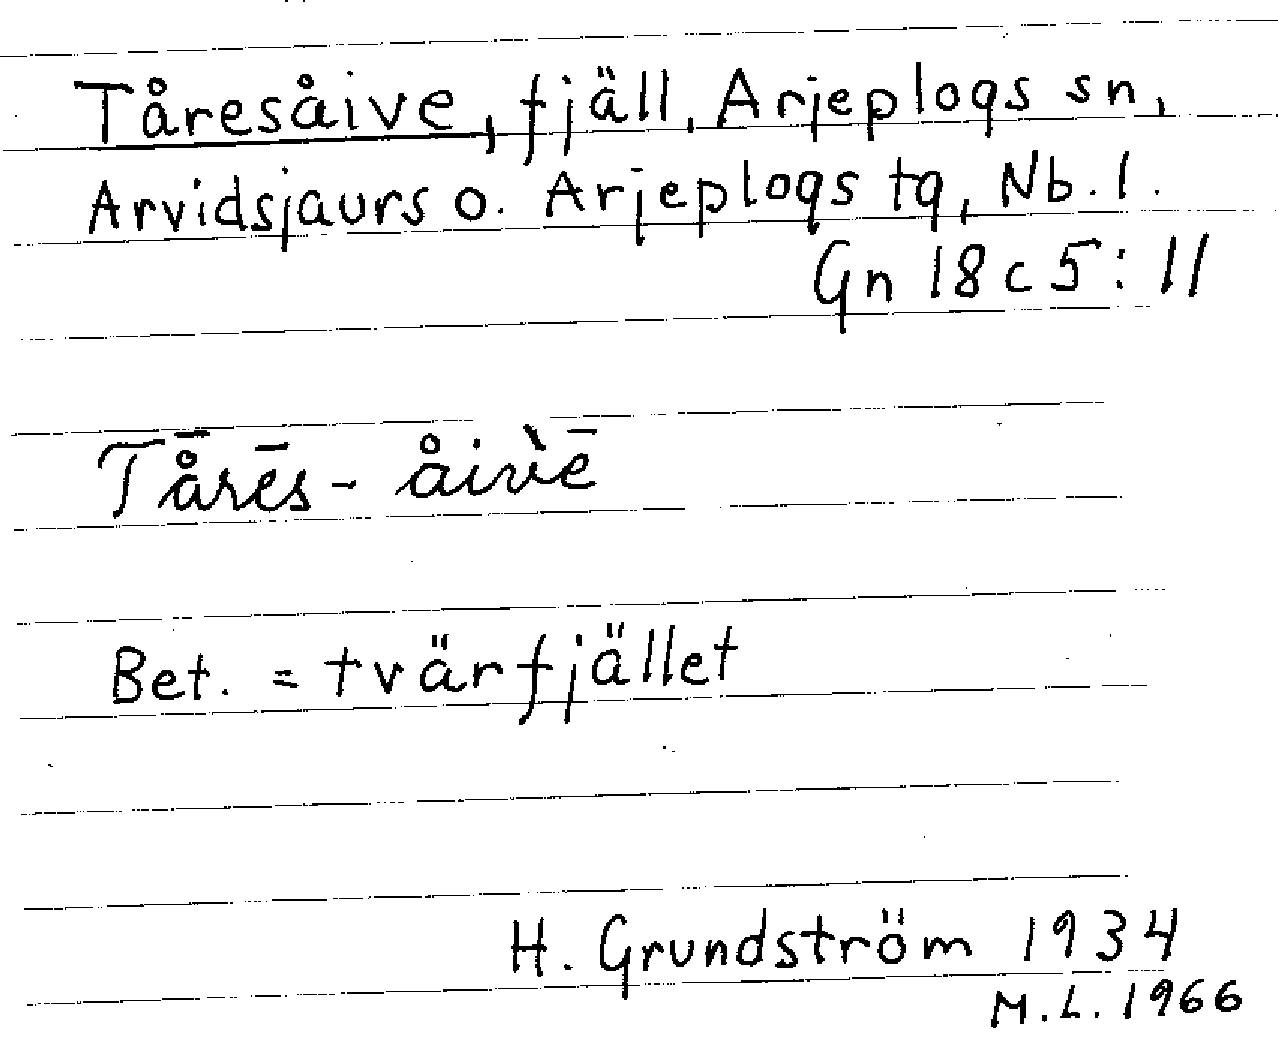 Tåresåive, fjäll, Arjeplogs sn,
Arvidsjaurs o. Arjeplogs tg, Nb. l.
Gn 18 c 5: 11
Tå̄rēs- åivè̄
Bet. = tvärfjället
H. Grundström 1934
M.L. 1966